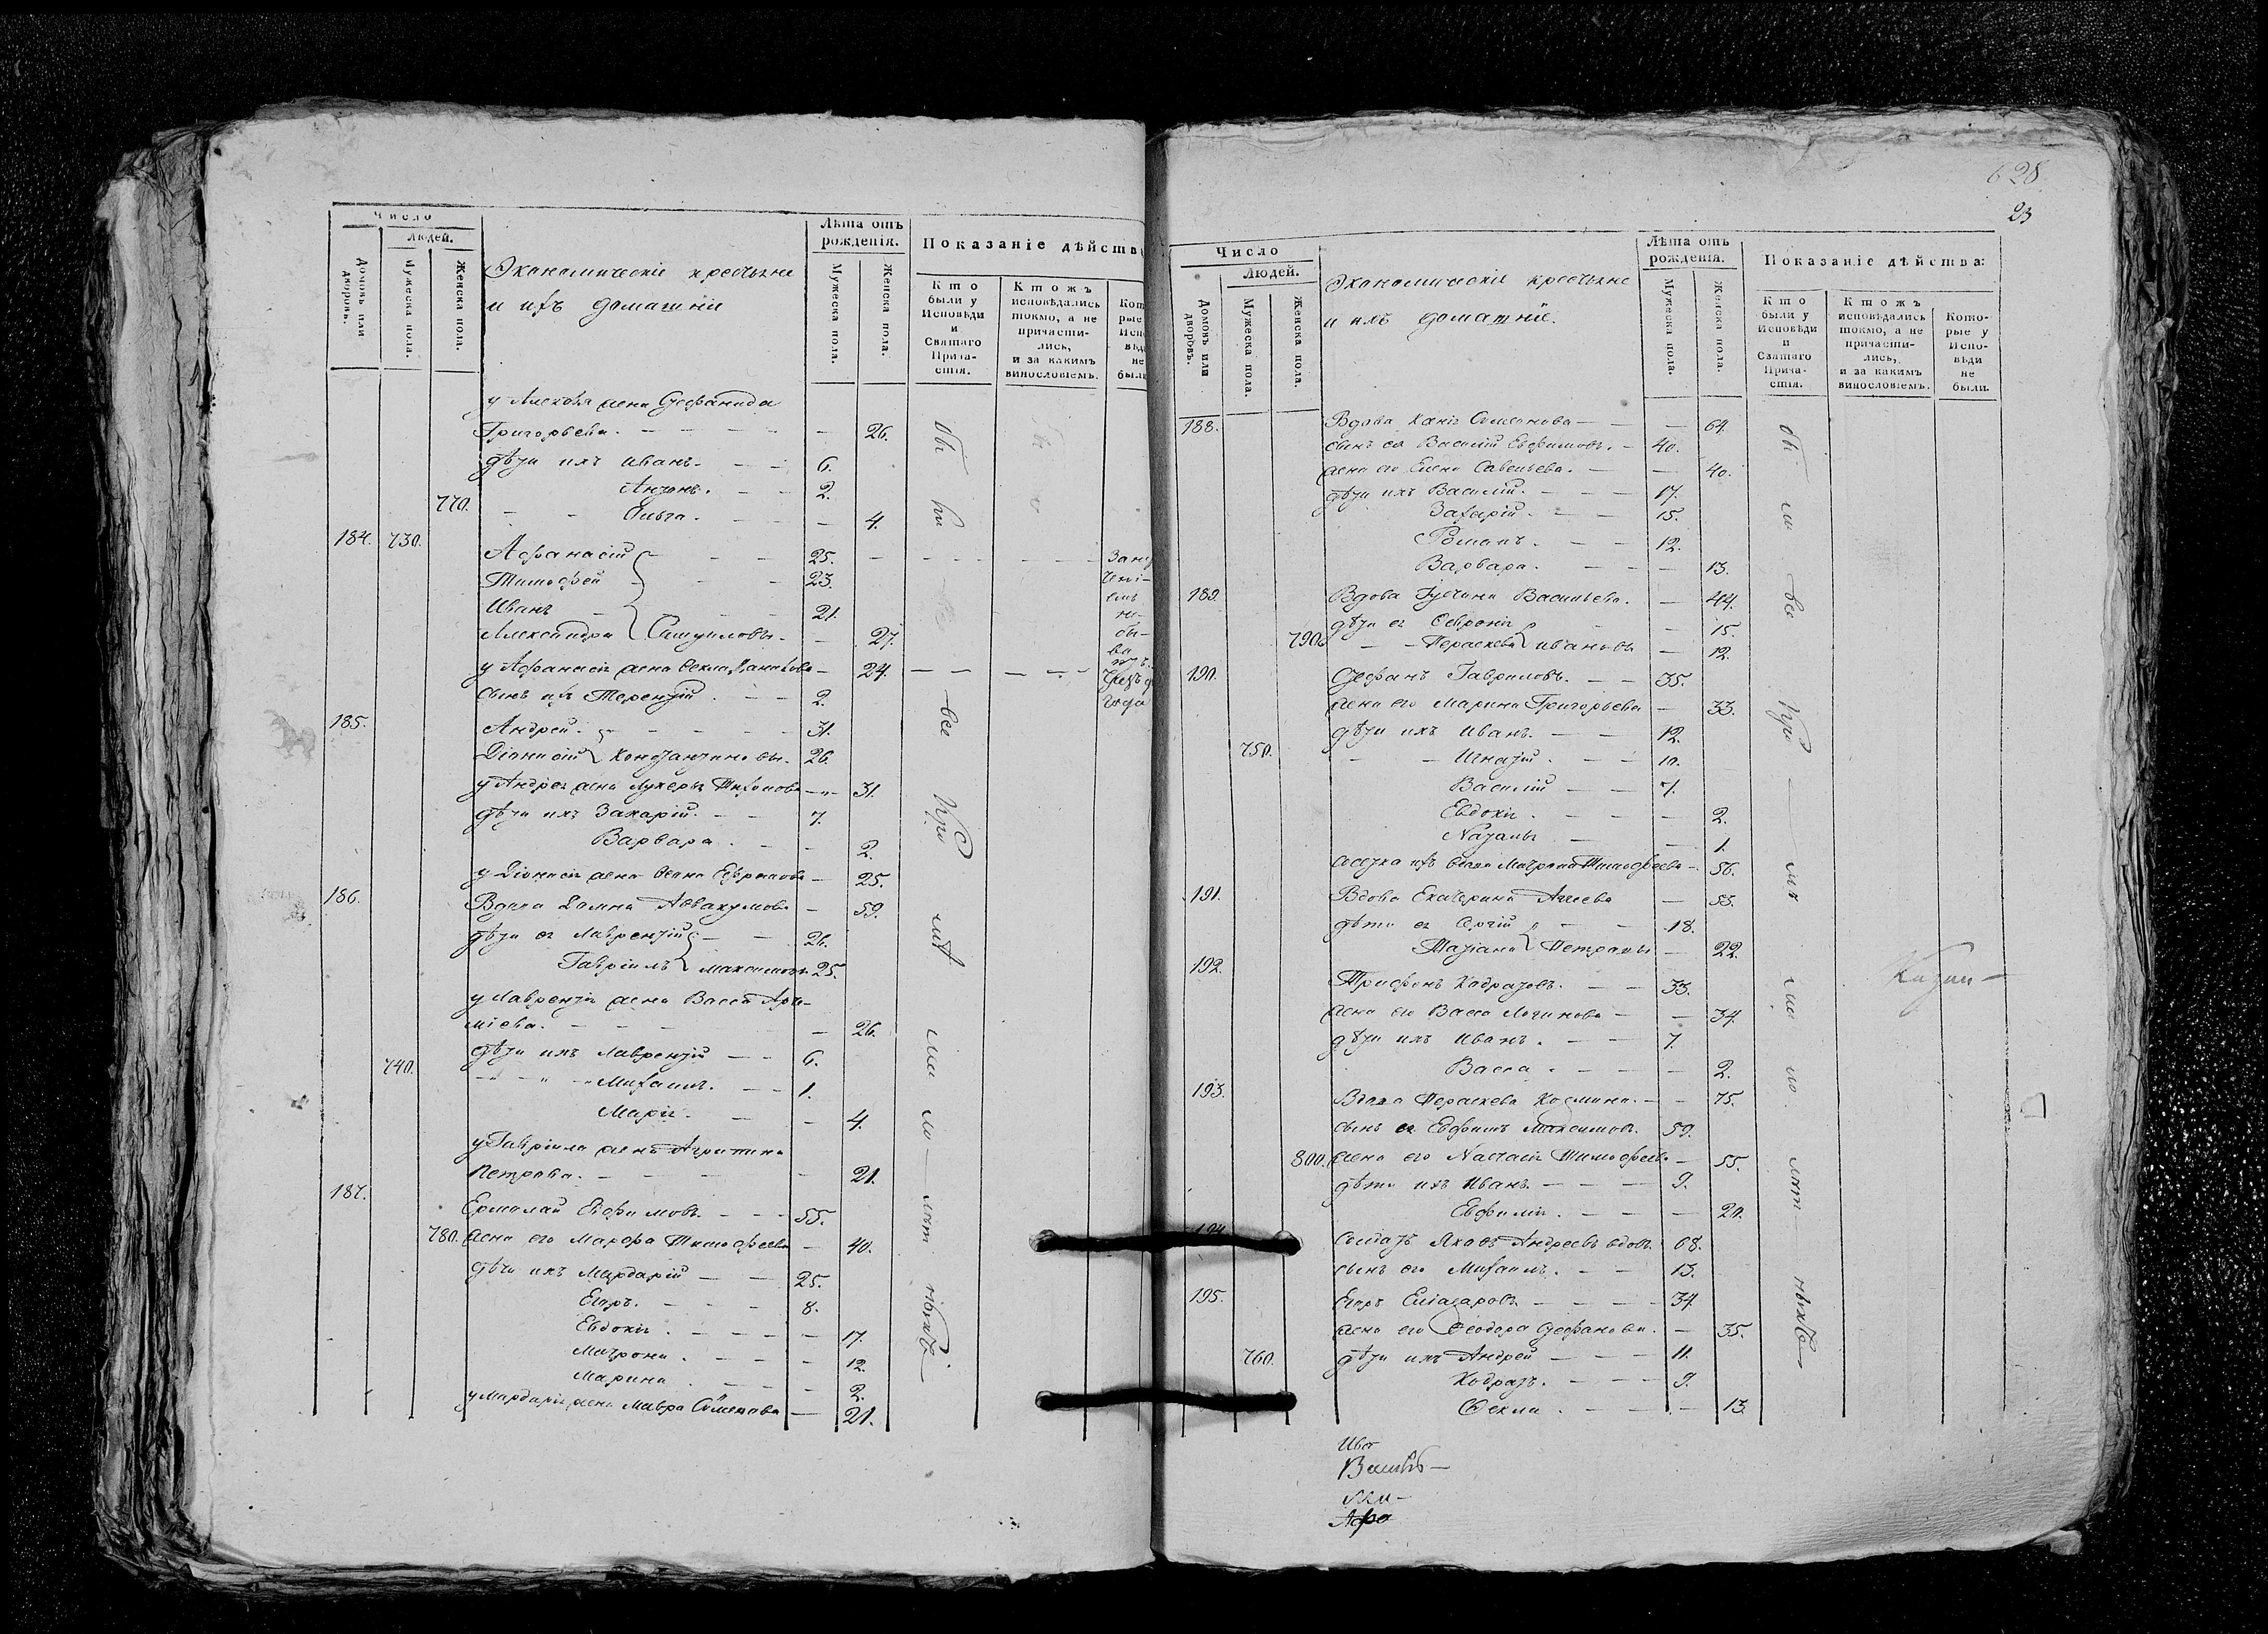 628
23
Число
Людей.
Домовъ или дворовъ.
Мужеска пола.
Женска пола.
Экономическіе крестьяне
и ихъ домашніе
Лѣта отъ рожденія.
Мужеска пола.
Женска пола.
Показаніе дѣйств
Кто были у Исповѣди и Святаго Причастія.
Ктожъ исповѣдались токмо, а не причастились, и за какимъ винословіемъ.
у Алексѣя жена Стефанида
Григорьева. 26.
дѣти ихъ Иванъ. 6.
Антонъ. 2.
770. Ольга. 4.
184. 730. Афанасій 25.
Тимофей 23.
Иванъ 21.
Александра Самуиловы. 27.
у Афанасія жена Фекла 24.
сынъ ихъ Терентій 2.
185. Андрей. 31.
Діонисій Константиновы. 26.
у Андрея жена Лукерья Тихонова 31.
дѣти ихъ Захарій. 7.
Варвара. 2.
у Діонисія жена 25.
186. Вдова Домна Аввакумова 59.
дѣти ея Лаврентій 26.
Гавріилъ Максимовы 25.
у Лаврентія жена Васса Арте-
міева. 26.
дѣти ихъ Лаврентій 6.
740. Михаилъ. 1.
Марія. 4.
у Гавріила жена Агрипина
Петрова. 21.
187. Ермолай Ефимовъ. 55.
780. жена его Марфа Тимофеева 40.
дѣти ихъ Мардарій 25.
Егоръ. 8.
Евдокія. 17.
Матрона. 12.
Марина. 2.
у Мардарія жена Мавра Семенова 21.
Число
Людей.
Домовъ или дворовъ.
Мужеска пола.
Женска пола.
Экономическіе крестьяне
и ихъ домашніе.
Лѣта отъ рожденія.
Мужеска пола.
Женска пола.
Показаніе дѣйства:
Кто были у Исповѣди и Святаго Причастія.
Ктожъ исповѣдались токмо, а не причастились, и за какимъ винословіемъ.
Которые у Исповѣди не были.
188. Вдова Ксенія Симеонова 64.
сынъ ея Василій Евфимовъ. 40.
жена его Елена Савельева. 40.
дѣти ихъ Василій. 17.
Захарій. 15.
Романъ. 12.
Варвара. 13.
189. Вдова Устинія Васильева. 44.
дѣти ея Февронія 15.
790. Параскева Ивановы 12.
190. Стефанъ Гавриловъ. 35.
жена его Марина Григорьева 33.
дѣти ихъ Иванъ. 12.
750. Игнатій. 10.
Василій 7.
Евдокія. 2.
Наталья 1.
ихъ вдова Матрона Тимофеева 56.
191. Вдова Екатерина Агеева 53.
дѣти ея Сергій 18.
Татіана Петровы 22.
192. Трифонъ Кодратовъ. 33.
жена его Васса Логинова 34.
дѣти ихъ Иванъ. 7.
Васса. 2.
193. Вдова Параскева Козмина. 75.
сынъ ея Евфимъ Максимовъ. 59.
800. жена его Настасія Тимофеева 55.
дѣти ихъ Иванъ. 9.
Евфимія. 20.
194. Солдатъ Яковъ Андреевъ вдовъ 68.
сынъ его Михаилъ. 13.
195. Егоръ Елиазаровъ 34.
жена его Феодора Стефанова. 35.
760. дѣти ихъ Андрей 11.
Кодратъ. 9.
Фекла. 13.